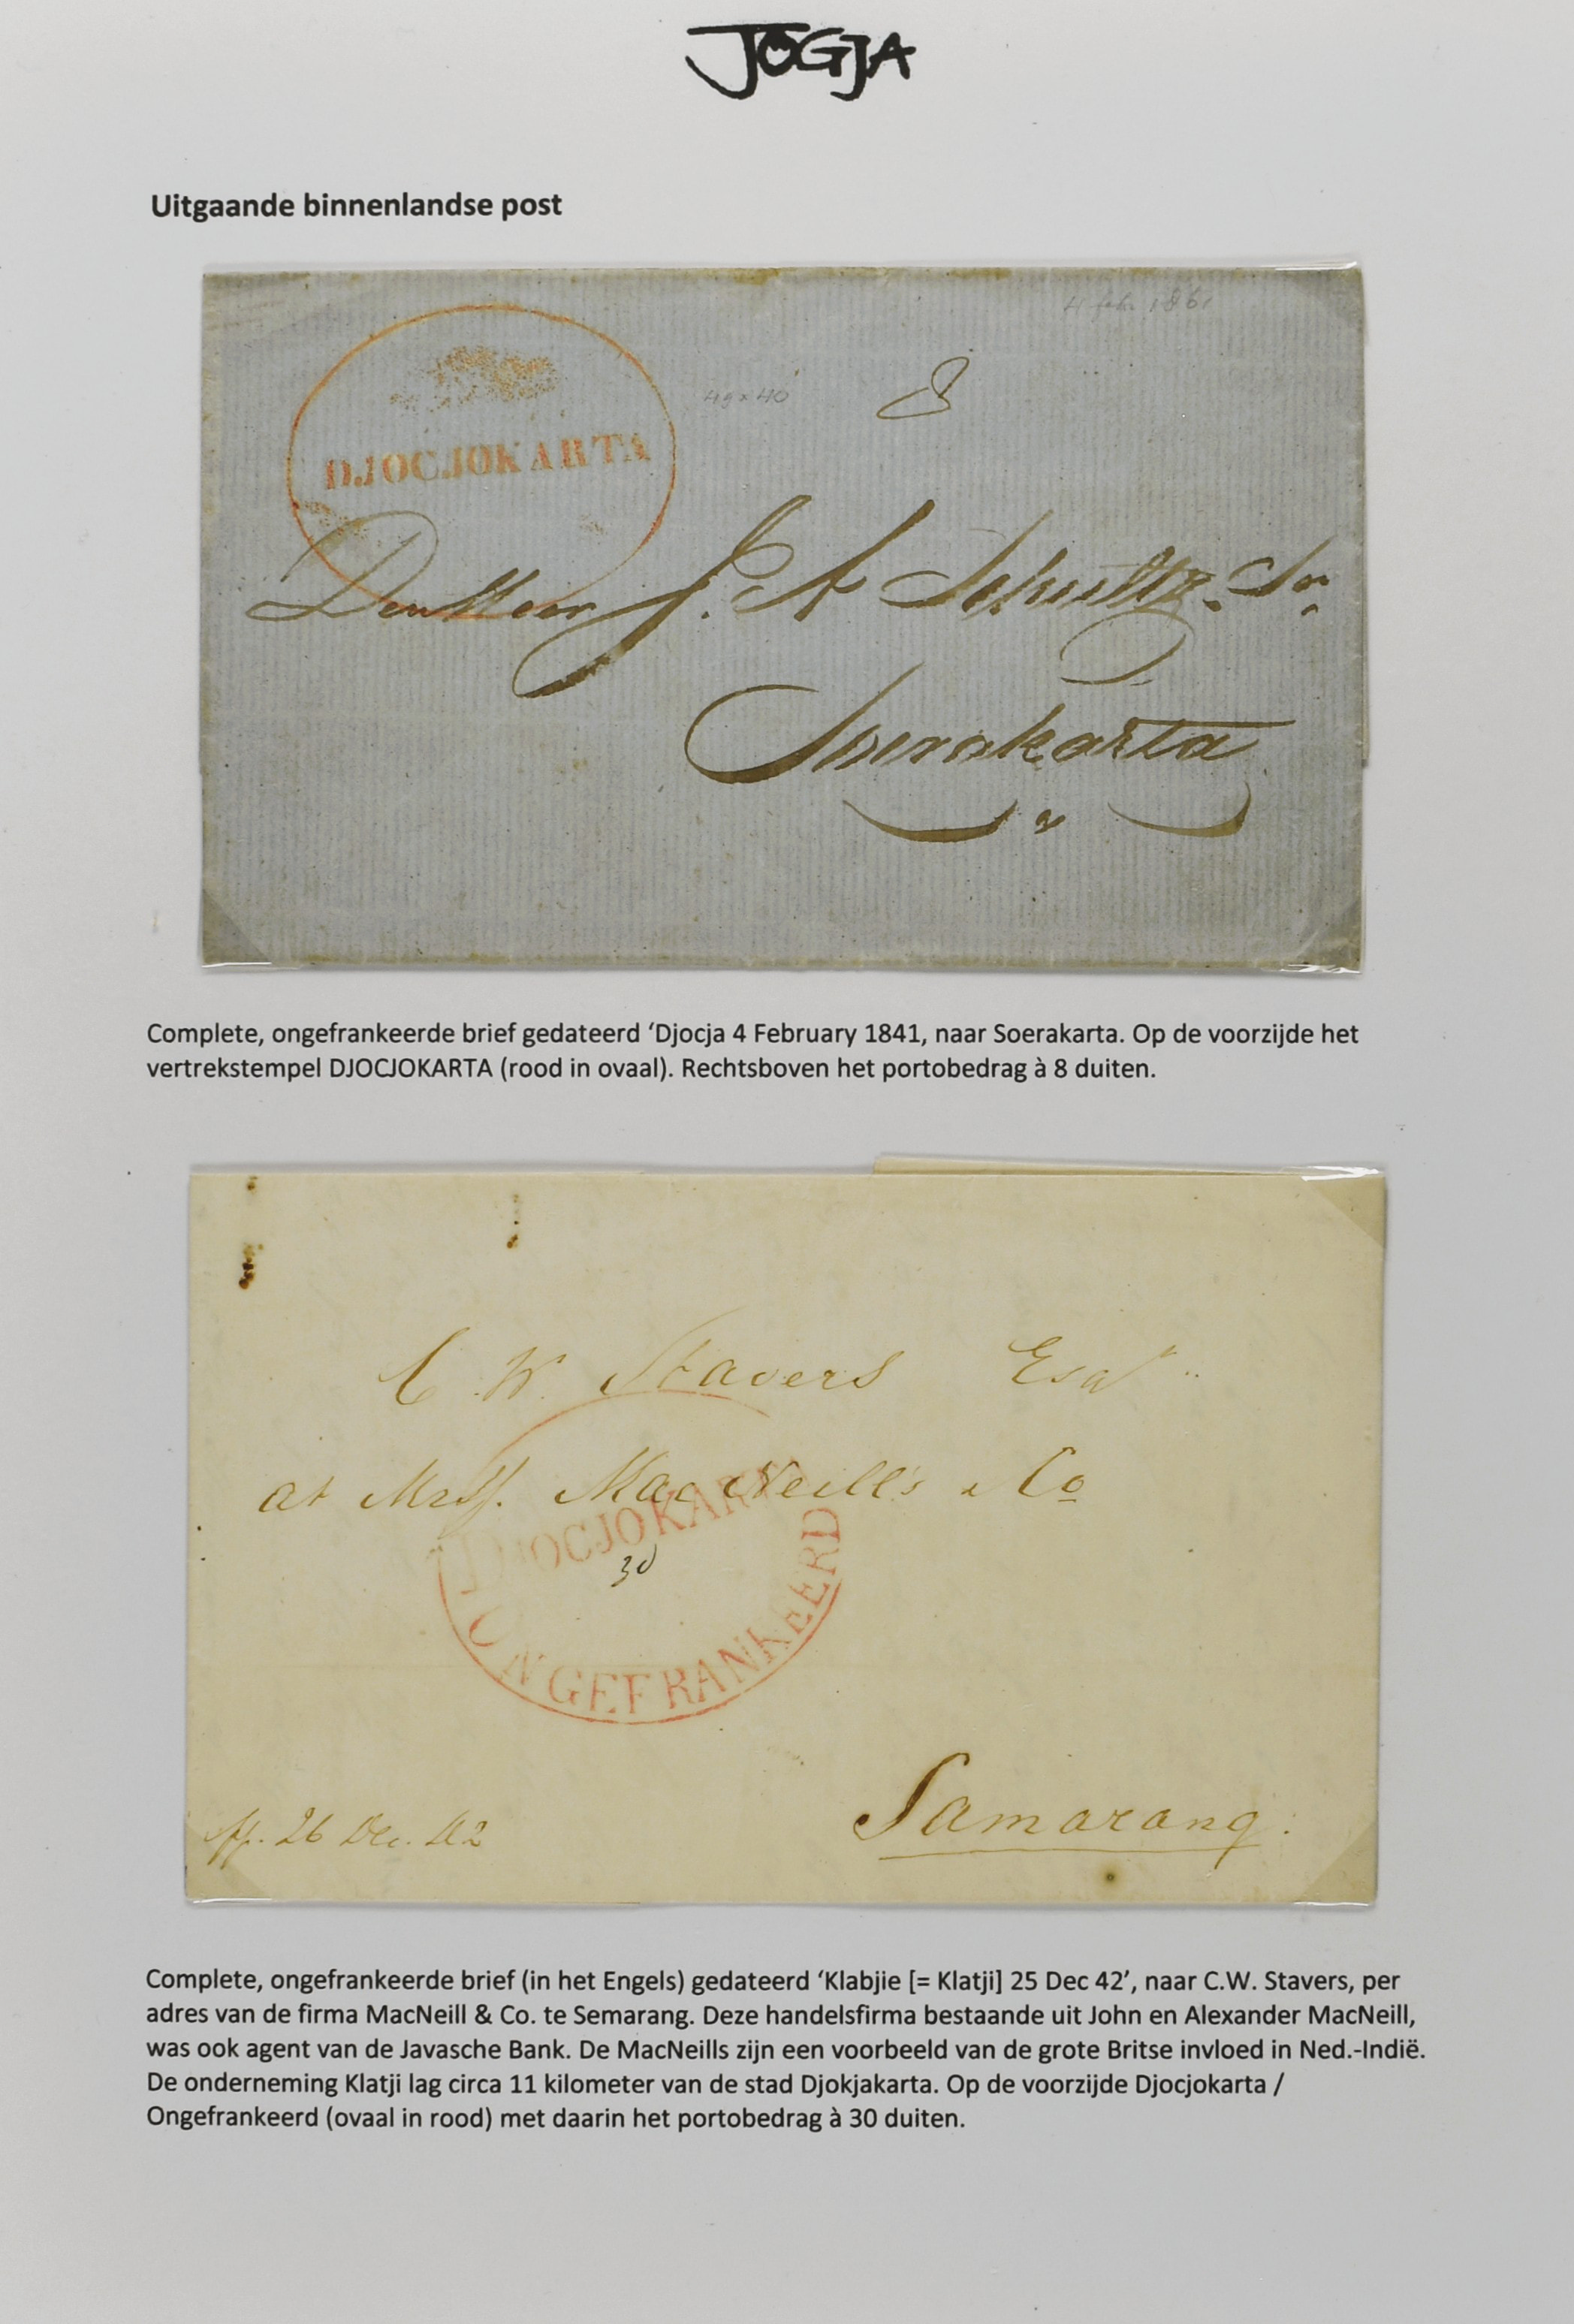 JOGJA
Uitgaande binnenlandse post
49 x 40
8
DJOCJOKARTA
Den Heer J. A Schultz. Sr.
Soerakarta
Complete, ongefrankeerde brief gedateerd ‘Djocja 4 February 1841, naar Soerakarta. Op de voorzijde het
vertrekstempel DJOCJOKARTA (rood in ovaal). Rechtsboven het portobedrag à 8 duiten.
C. W. Stavers Esqr
at Mrss. Mac Neill's & Co
DJOCJOKARTA
30
ONGEFRANKEERD
Samarang.
26 Dec. 42
Complete, ongefrankeerde brief (in het Engels) gedateerd ‘Klabjie [= Klatji] 25 Dec 42’, naar C.W. Stavers, per
adres van de firma MacNeill & Co. te Semarang. Deze handelsfirma bestaande uit John en Alexander MacNeill,
was ook agent van de Javasche Bank. De MacNeills zijn een voorbeeld van de grote Britse invloed in Ned.-Indië.
De onderneming Klatji lag circa 11 kilometer van de stad Djokjakarta. Op de voorzijde Djocjokarta /
Ongefrankeerd (ovaal in rood) met daarin het portobedrag à 30 duiten.